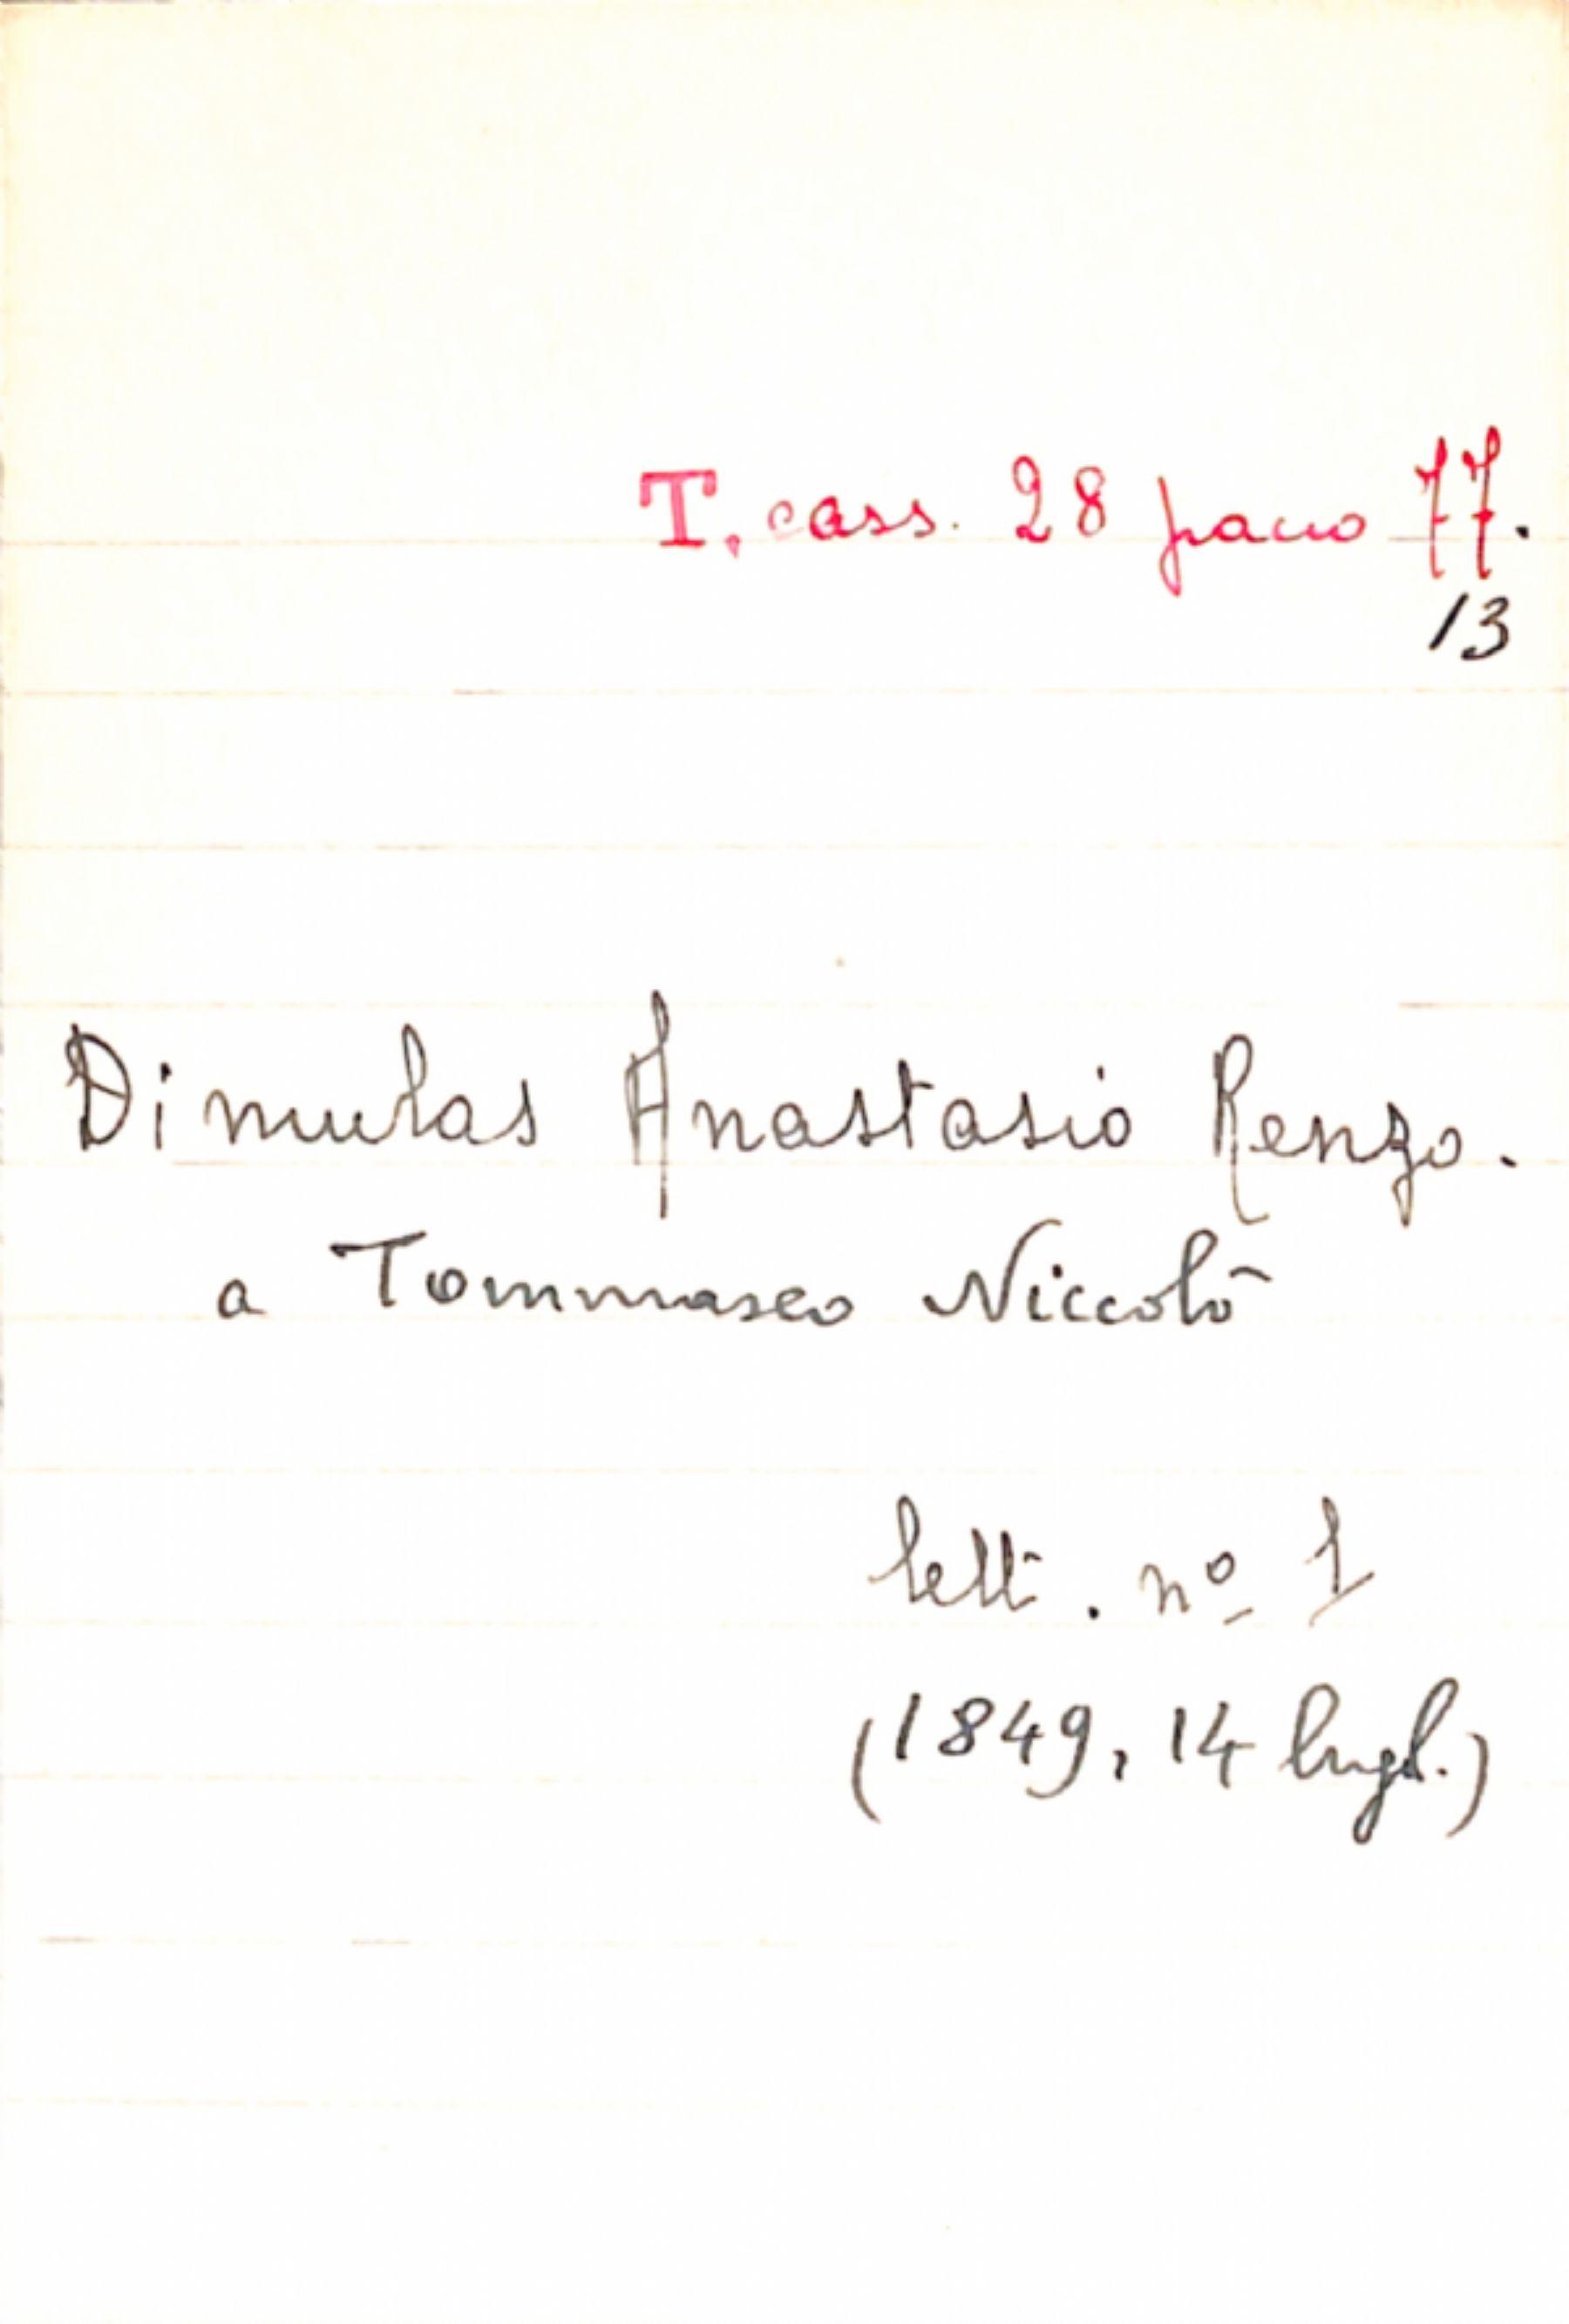 T. cass. 28 pacco 77.
13
Dimulas Anastasio Renzo.
a Tommaseo Niccolò
lett. nº 1
(1849, 14 lugl.)